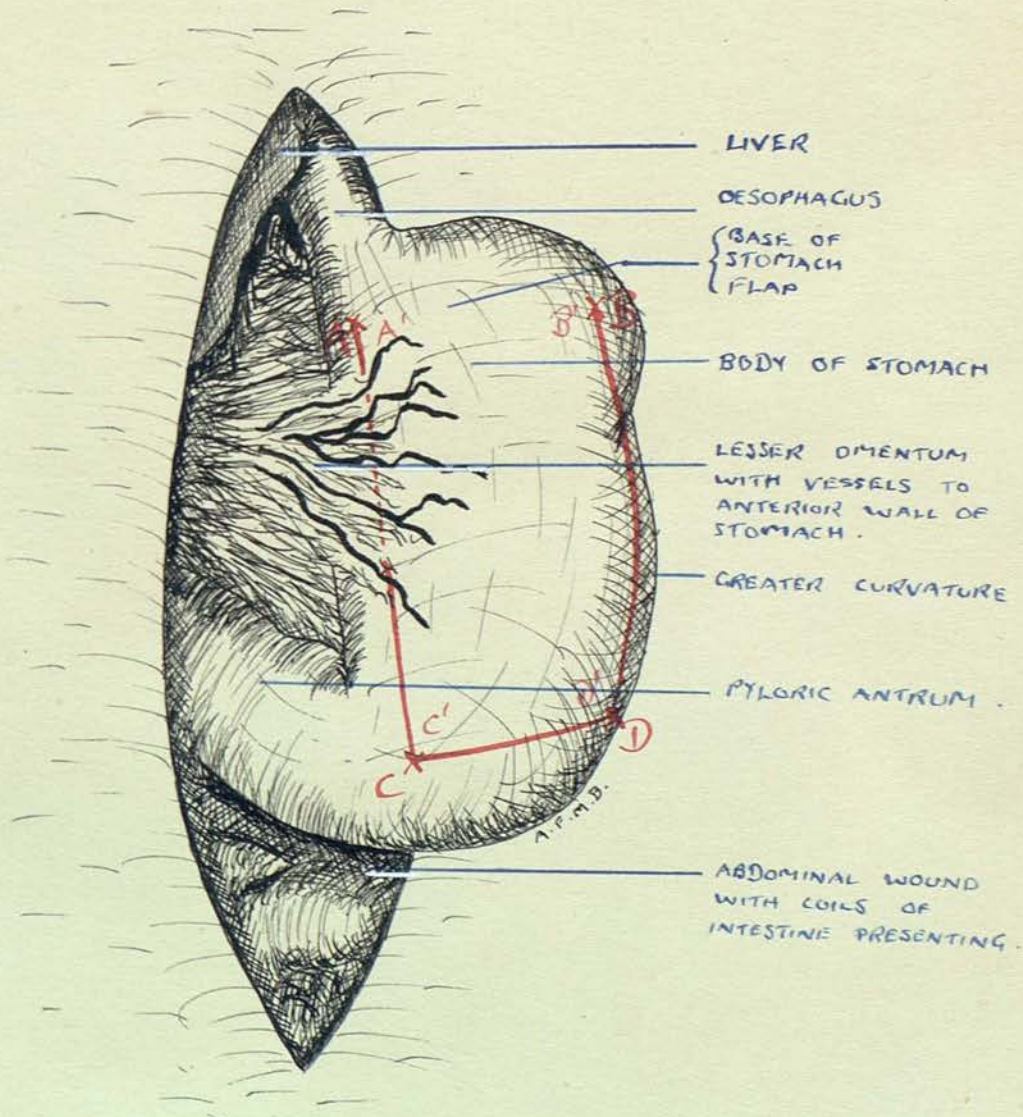 LIVER
OESOPHAGUS
BASE OF
STOMACH
FLAP
A'
B' B
BODY OF STOMACH
LESSER OMENTUM
WITH VESSELS TO
ANTERIOR WALL OF
STOMACH.
GREATER CURVATURE
PYLORIC ANTRUM.
D'
C'
D
C
A.P.M.B.
ABDOMINAL WOUND
WITH COILS OF
INTESTINE PRESENTING.